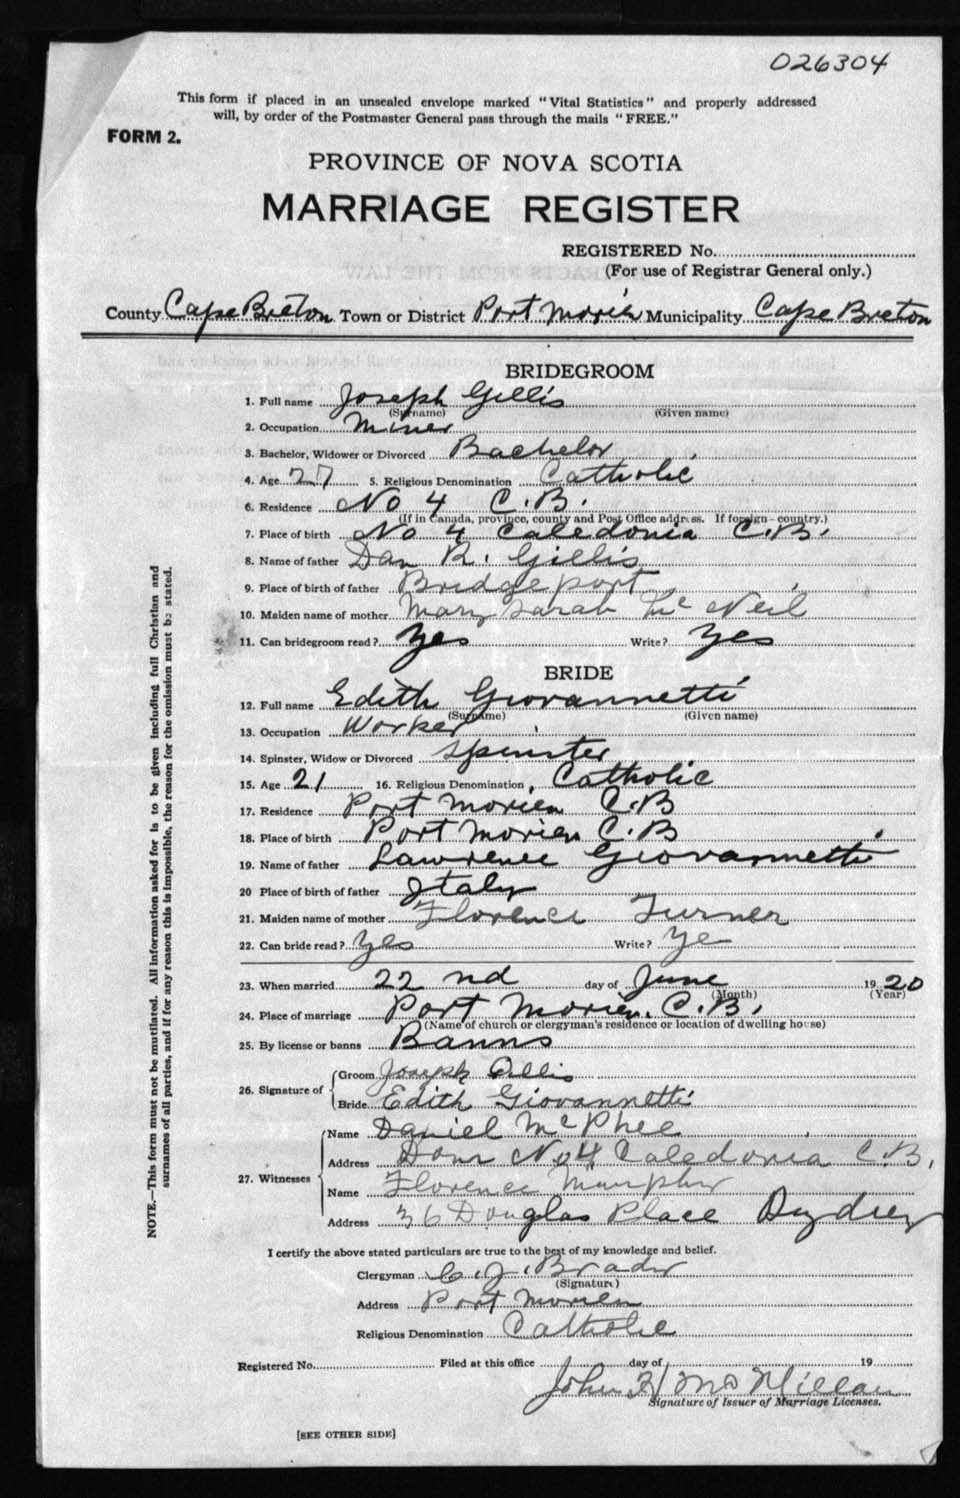 026304
This form if placed in an unsealed envelope marked "Vital Statistics" and properly addressed
will, by order of the Postmaster General pass through the mails "FREE."
FORM 2.
PROVINCE OF NOVA SCOTIA
MARRIAGE REGISTER
REGISTERED No.
(For use of Registrar General only.)
County Cape Breton Town or District Port Morien Municipality Cape Breton
BRIDEGROOM
1. Full name Joseph Gillis
(Surname) (Given name)
2. Occupation Miner
3. Bachelor, Widower or Divorced Bachelor
4. Age 27 5. Religious Denomination Catholic
6. Residence No 4 C.B.
(If in Canada, province, county and Post Office address. If foreign—country.)
7. Place of birth No 4 Caledonia C.B.
8. Name of father Dan R. Gillis
9. Place of birth of father Bridgeport
10. Maiden name of mother Mary Sarah McNeil
11. Can bridegroom read? Yes Write? Yes
BRIDE
12. Full name Edith Giovannetti
(Surname) (Given name)
13. Occupation Worker
14. Spinster, Widow or Divorced Spinster
15. Age 21 16. Religious Denomination Catholic
17. Residence Port Morien C.B
18. Place of birth Port Morien C.B
19. Name of father Lawrence Giovannetti
20 Place of birth of father Italy
21. Maiden name of mother Florence Turner
22. Can bride read? Yes Write? Ye
23. When married 22nd day of June 1920
(Month) (Year)
24. Place of marriage Port Morien. C.B.
(Name of church or clergyman's residence or location of dwelling house)
25. By license or banns Banns
26. Signature of Groom Joseph Gillis
Bride Edith Giovannetti
27. Witnesses
Name Daniel McPhee
Address Dom No 4 Caledonia C.B.
Name Florence Murphy
Address 36 Douglas Place Sydney
I certify the above stated particulars are true to the best of my knowledge and belief.
Clergyman C. J. Brady
(Signature)
Address Port Morien
Religious Denomination Catholic
Registered No. Filed at this office day of 19
John H McMillan
Signature of Issuer of Marriage Licenses.
[SEE OTHER SIDE]
NOTE.—This form must not be mutilated. All information asked for is to be given including full Christian and
surnames of all parties, and if for any reason this is impossible, the reason for the omission must be stated.